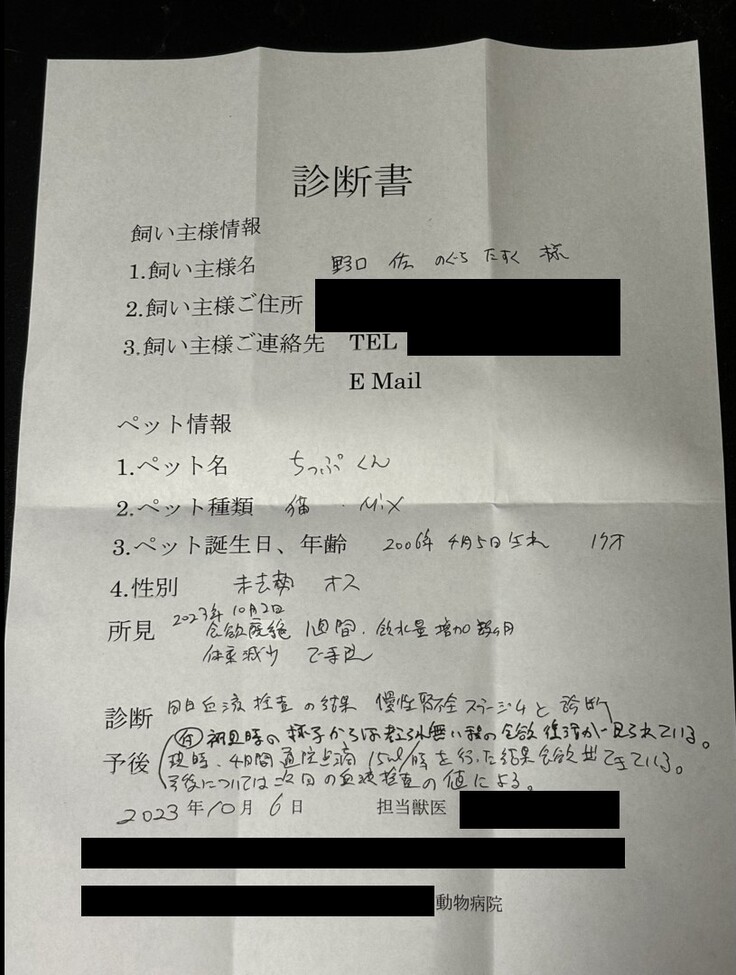 診断書
飼い主様情報
1.飼い主様名 野口 佐 のぐち たすく 様
2.飼い主様ご住所
3.飼い主様ご連絡先 TEL
E Mail
ペット情報
1.ペット名 ちっぷくん
2.ペット種類 猫・MiX
3.ペット誕生日、年齢 2006年 4月5日生れ 17才
4.性別 未去勢 オス
2023年10月2日
所見 食欲廃絶 1週間、飲水量増加 数ヶ月
体重減少 で来院
診断 同日血液検査の結果 慢性腎不全ステージ4と診断
㊟初見時の様子からは考えられ無い程の食欲復活が見られている。
予後 現時、4日間通院点滴 15ml/時を行った結果食欲出てきている。
予後については次回の血液検査の値による。
2023年10月6日 担当獣医
動物病院